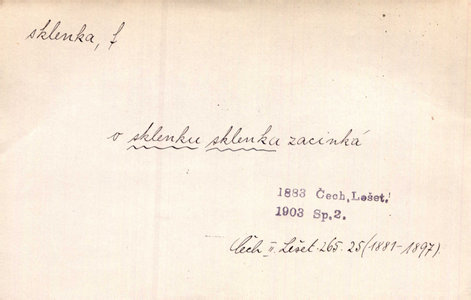 sklenka, f
o sklenku sklenku zacinká
1883 Čech, Lešet.
1903 Sp.2.
Čech II. Lešet. 265. 25 (1881-1897)